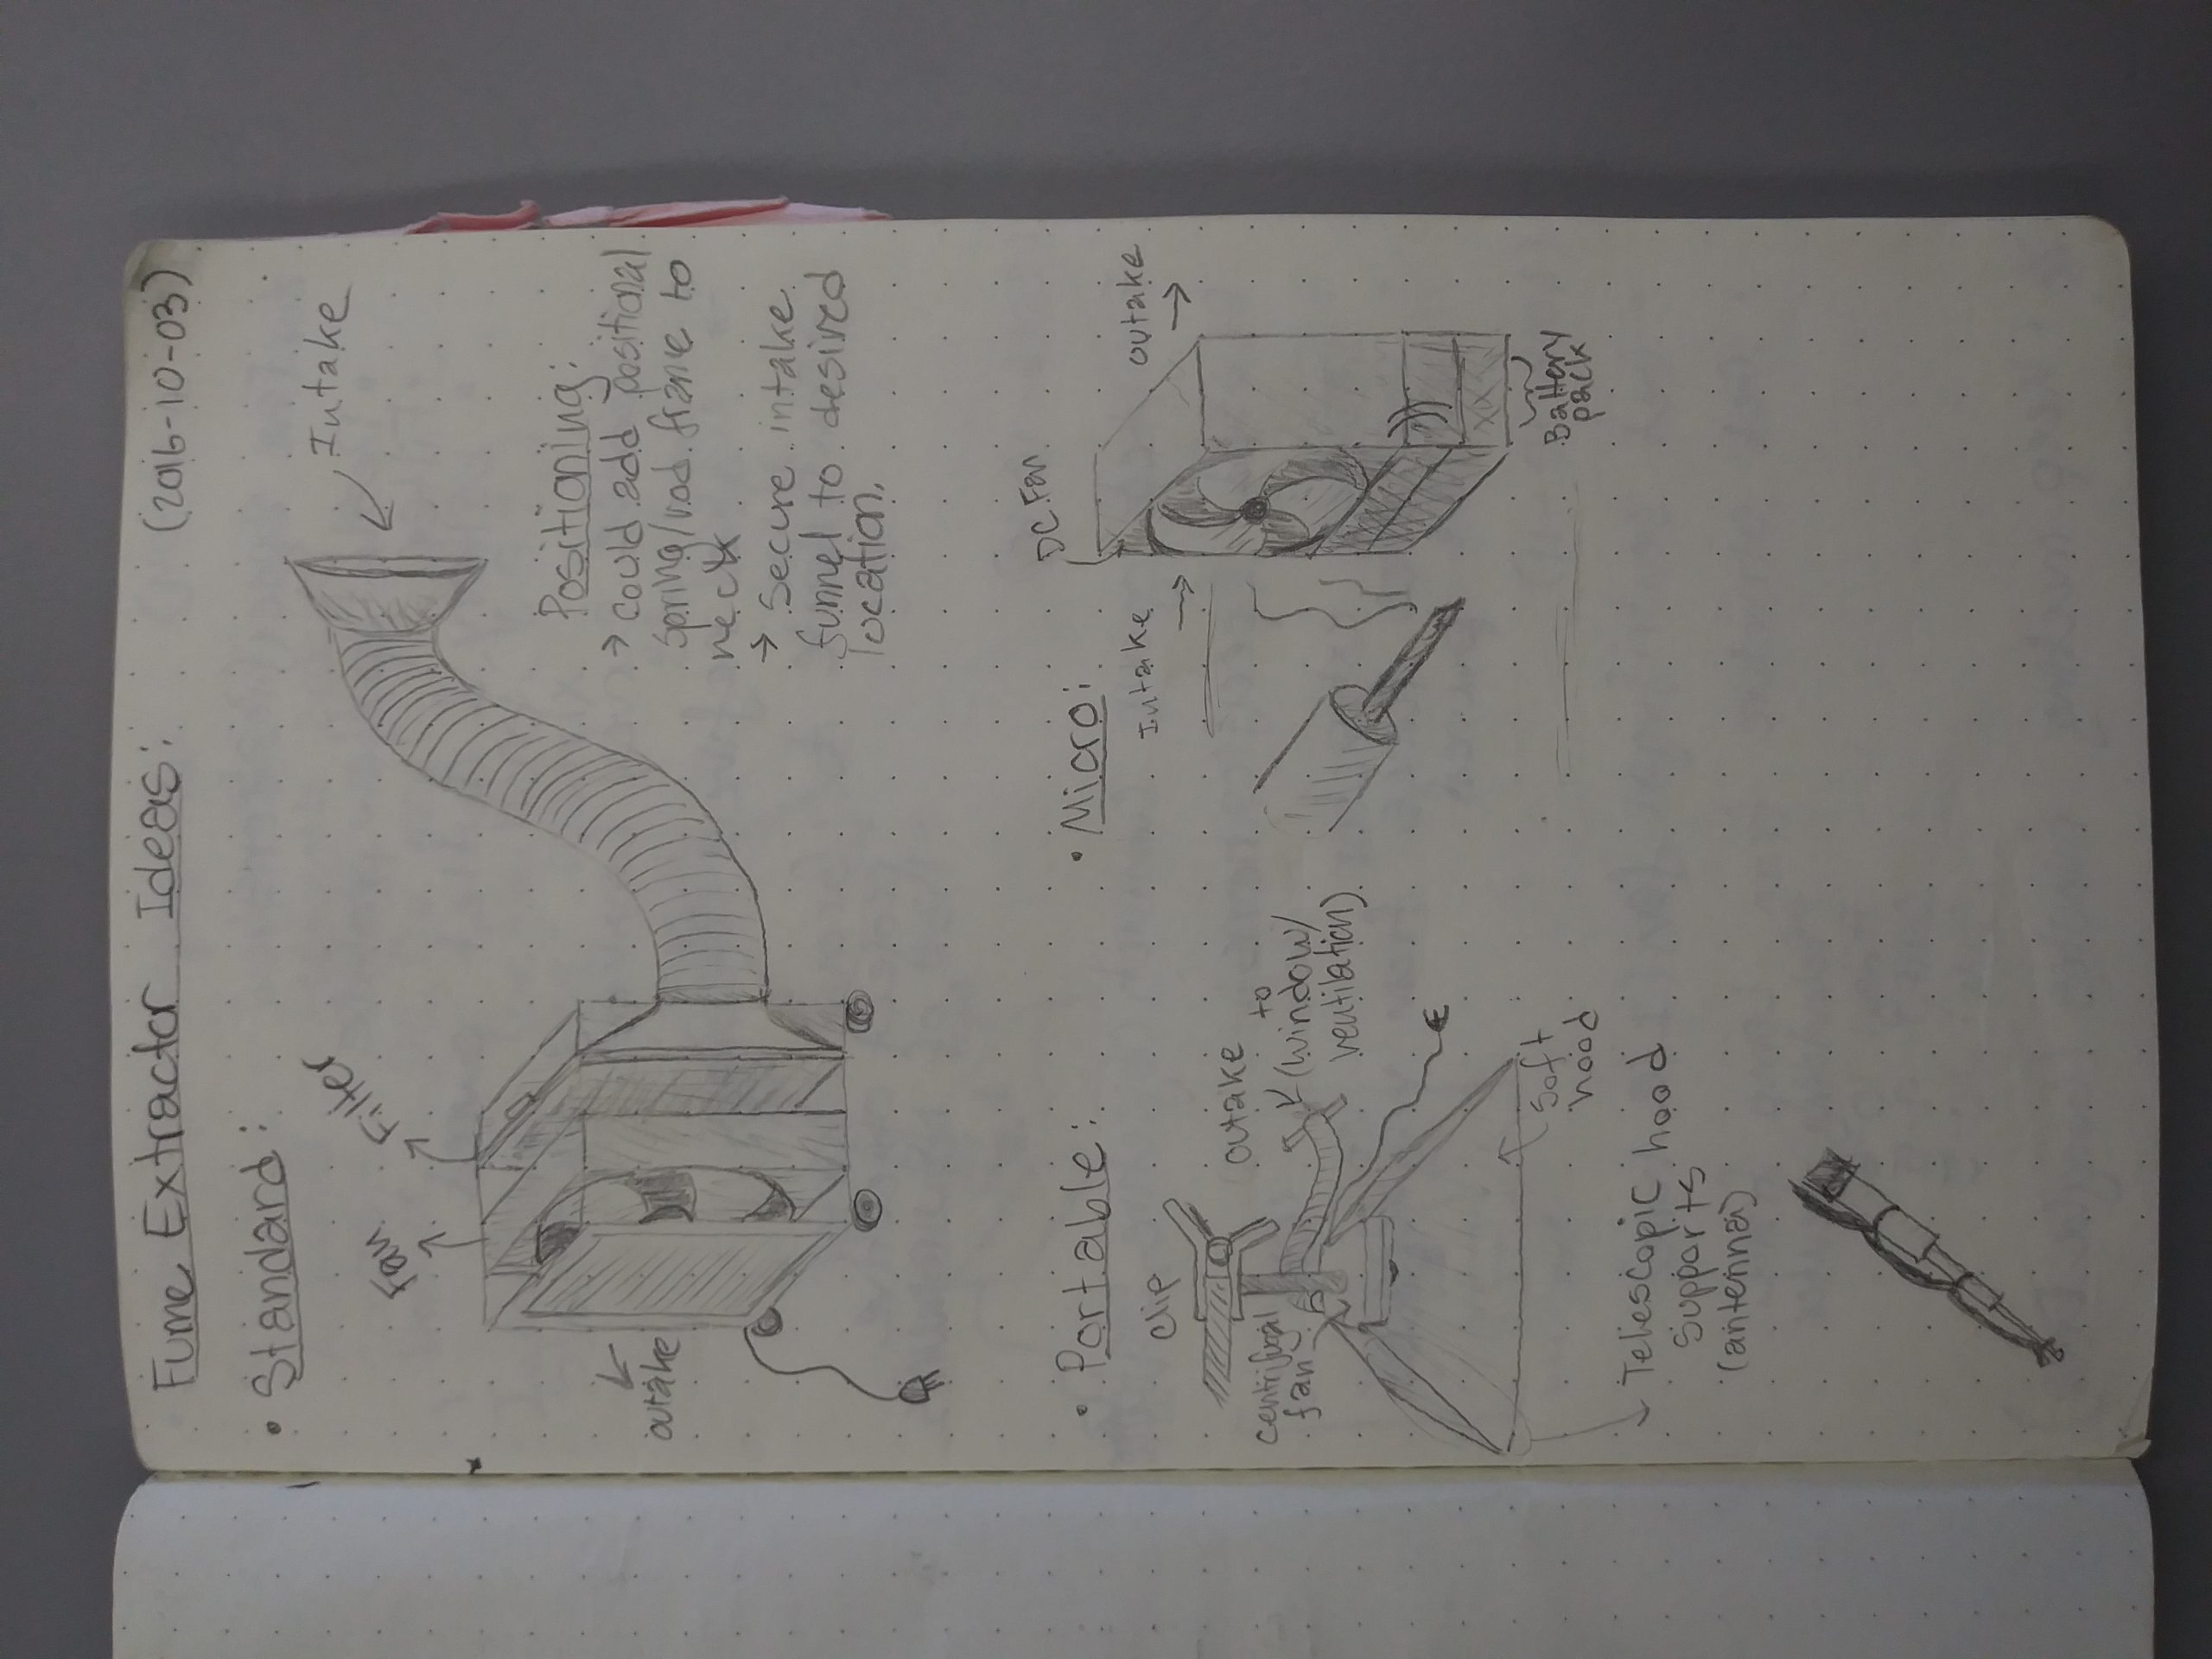 Fume Extractor Ideas: (2016-10-03)
• Standard:
Filter
Fan
outake
Intake
Positioning:
→ could add positional
spring/rod frame to
neck
→ secure intake
funnel to desired
location.
• Portable:
Clip
outake
to
(window/
ventilation)
centrifugal
fan
soft
hood
Telescopic hood
supports
(antenna)
• Micro:
Intake
DC Fan
outake
Battery
pack